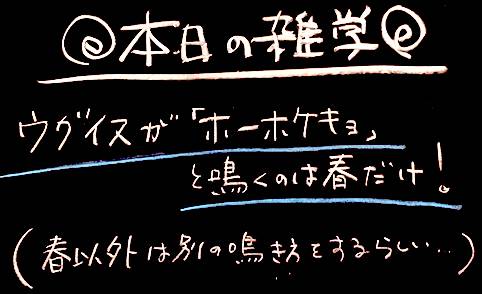 @本日の雑学@
ウグイスが「ホーホケキョ」
と鳴くのは春だけ!
(春以外は別の鳴き方をするらしい…)